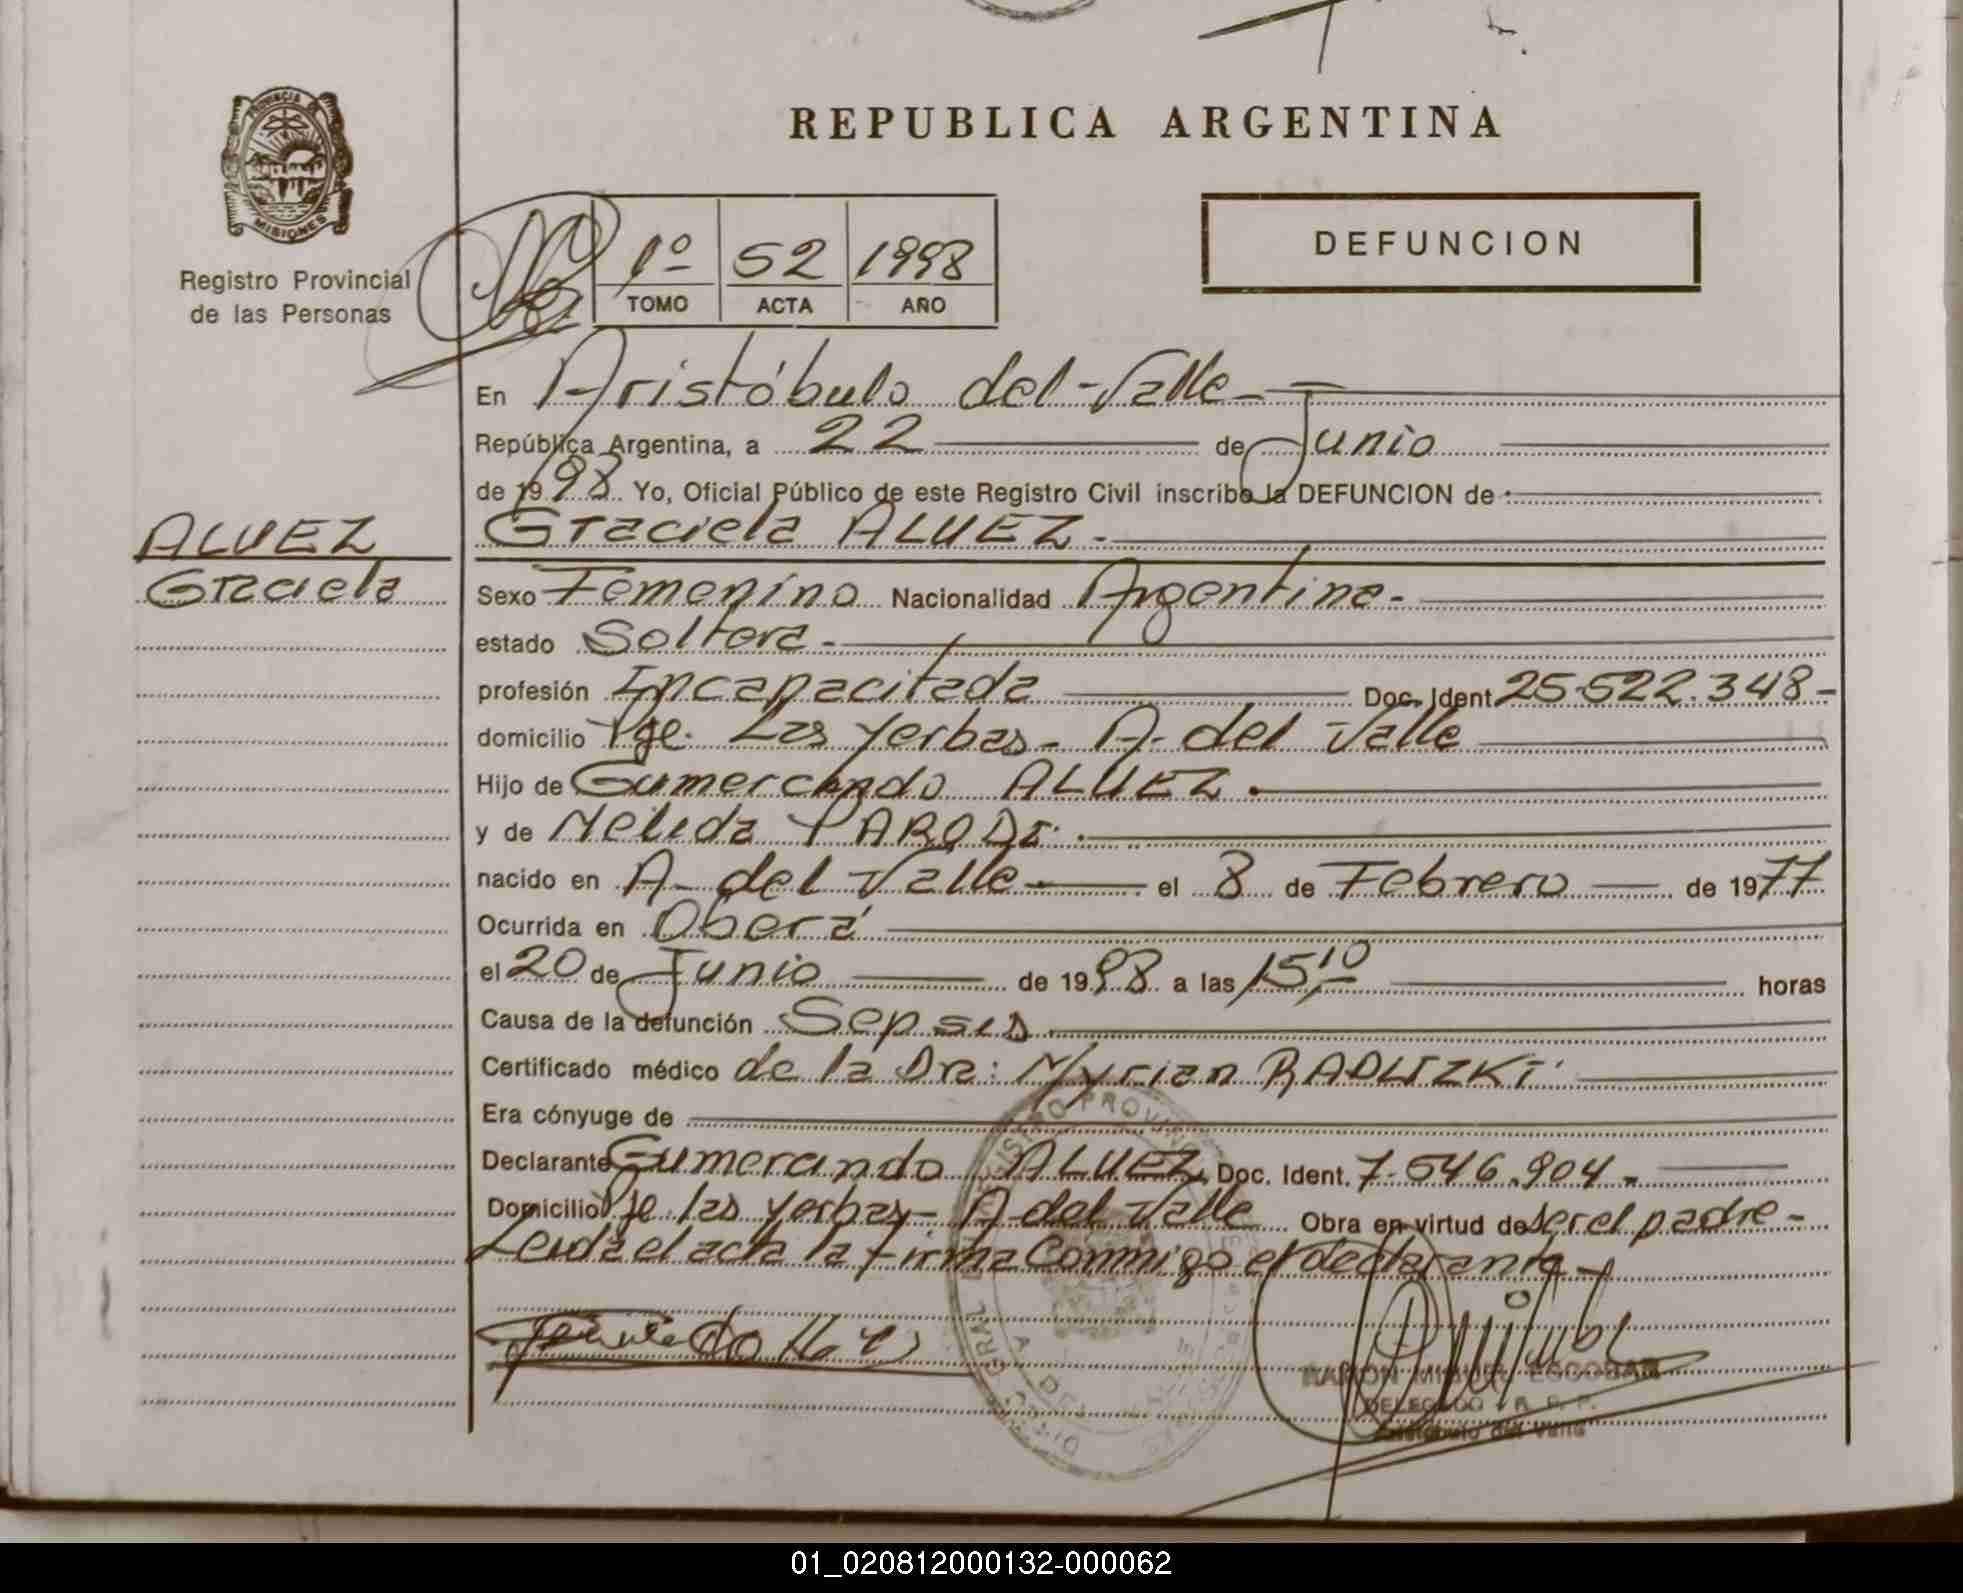 REPUBLICA ARGENTINA
PROVINCIA DE
MISIONES
Registro Provincial
de las Personas
1º 52 1998
TOMO ACTA AÑO
DEFUNCION
En Aristóbulo del Valle
República Argentina, a 22 de Junio
de 1998 Yo, Oficial Público de este Registro Civil inscribo la DEFUNCION de
ALVEZ
Graciela
Graciela ALVEZ.
Sexo Femenino Nacionalidad Argentina.
estado Soltera
profesión Incapacitada Doc. Ident. 25.522.348
domicilio Pje. Las Yerbas - A. del Valle
Hijo de Gumercindo ALVEZ.
y de Nelida PARODI.
nacido en A. del Valle el 8 de Febrero de 1977
Ocurrida en Oberá
el 20 de Junio de 1998 a las 15,10 horas
Causa de la defunción Sepsis
Certificado médico de la Dra: Myrian RADLIZKI
Era cónyuge de
Declarante Gumercindo ALVEZ Doc. Ident. 7.546.904.
Domicilio Pje las Yerbas - A del Valle Obra en virtud de ser el padre
Leída el acta la firma Conmigo el declarante
RAMON MIGUEL ESCOBAR
DELEGADO R. P. P.
Aristóbulo del Valle
01_020812000132-000062